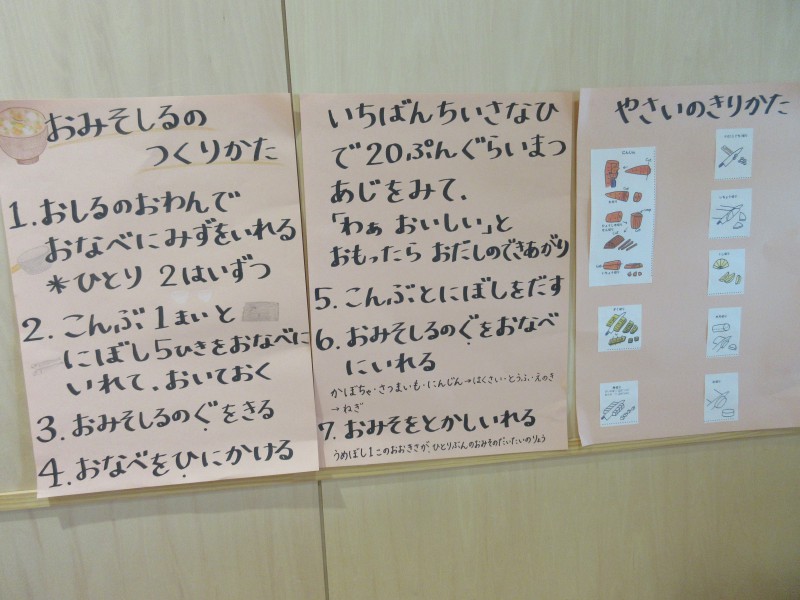 おみそしるの
つくりかた
1. おしるのおわんで
おなべにみずをいれる
*ひとり 2はいずつ
2. こんぶ1まいと
にぼし5ひきをおなべに
いれて.おいておく
3. おみそしるのぐをきる
4. おなべをひにかける
いちばんちいさなひ
で20ぷんぐらいまつ
あじをみて.
「わぁ おいしい」と
おもったら おだしのできあがり
5. こんぶとにぼしをだす
6. おみそしるのぐをおなべ
にいれる
かぼちゃ・さつまいも・にんじん→はくさい・とうふ・えのき
→ねぎ
7. おみそをとかしいれる
うめぼし1このおおきさが、ひとりぶんのおみそのだいたいのりょう
やさいのきりかた
にんじん